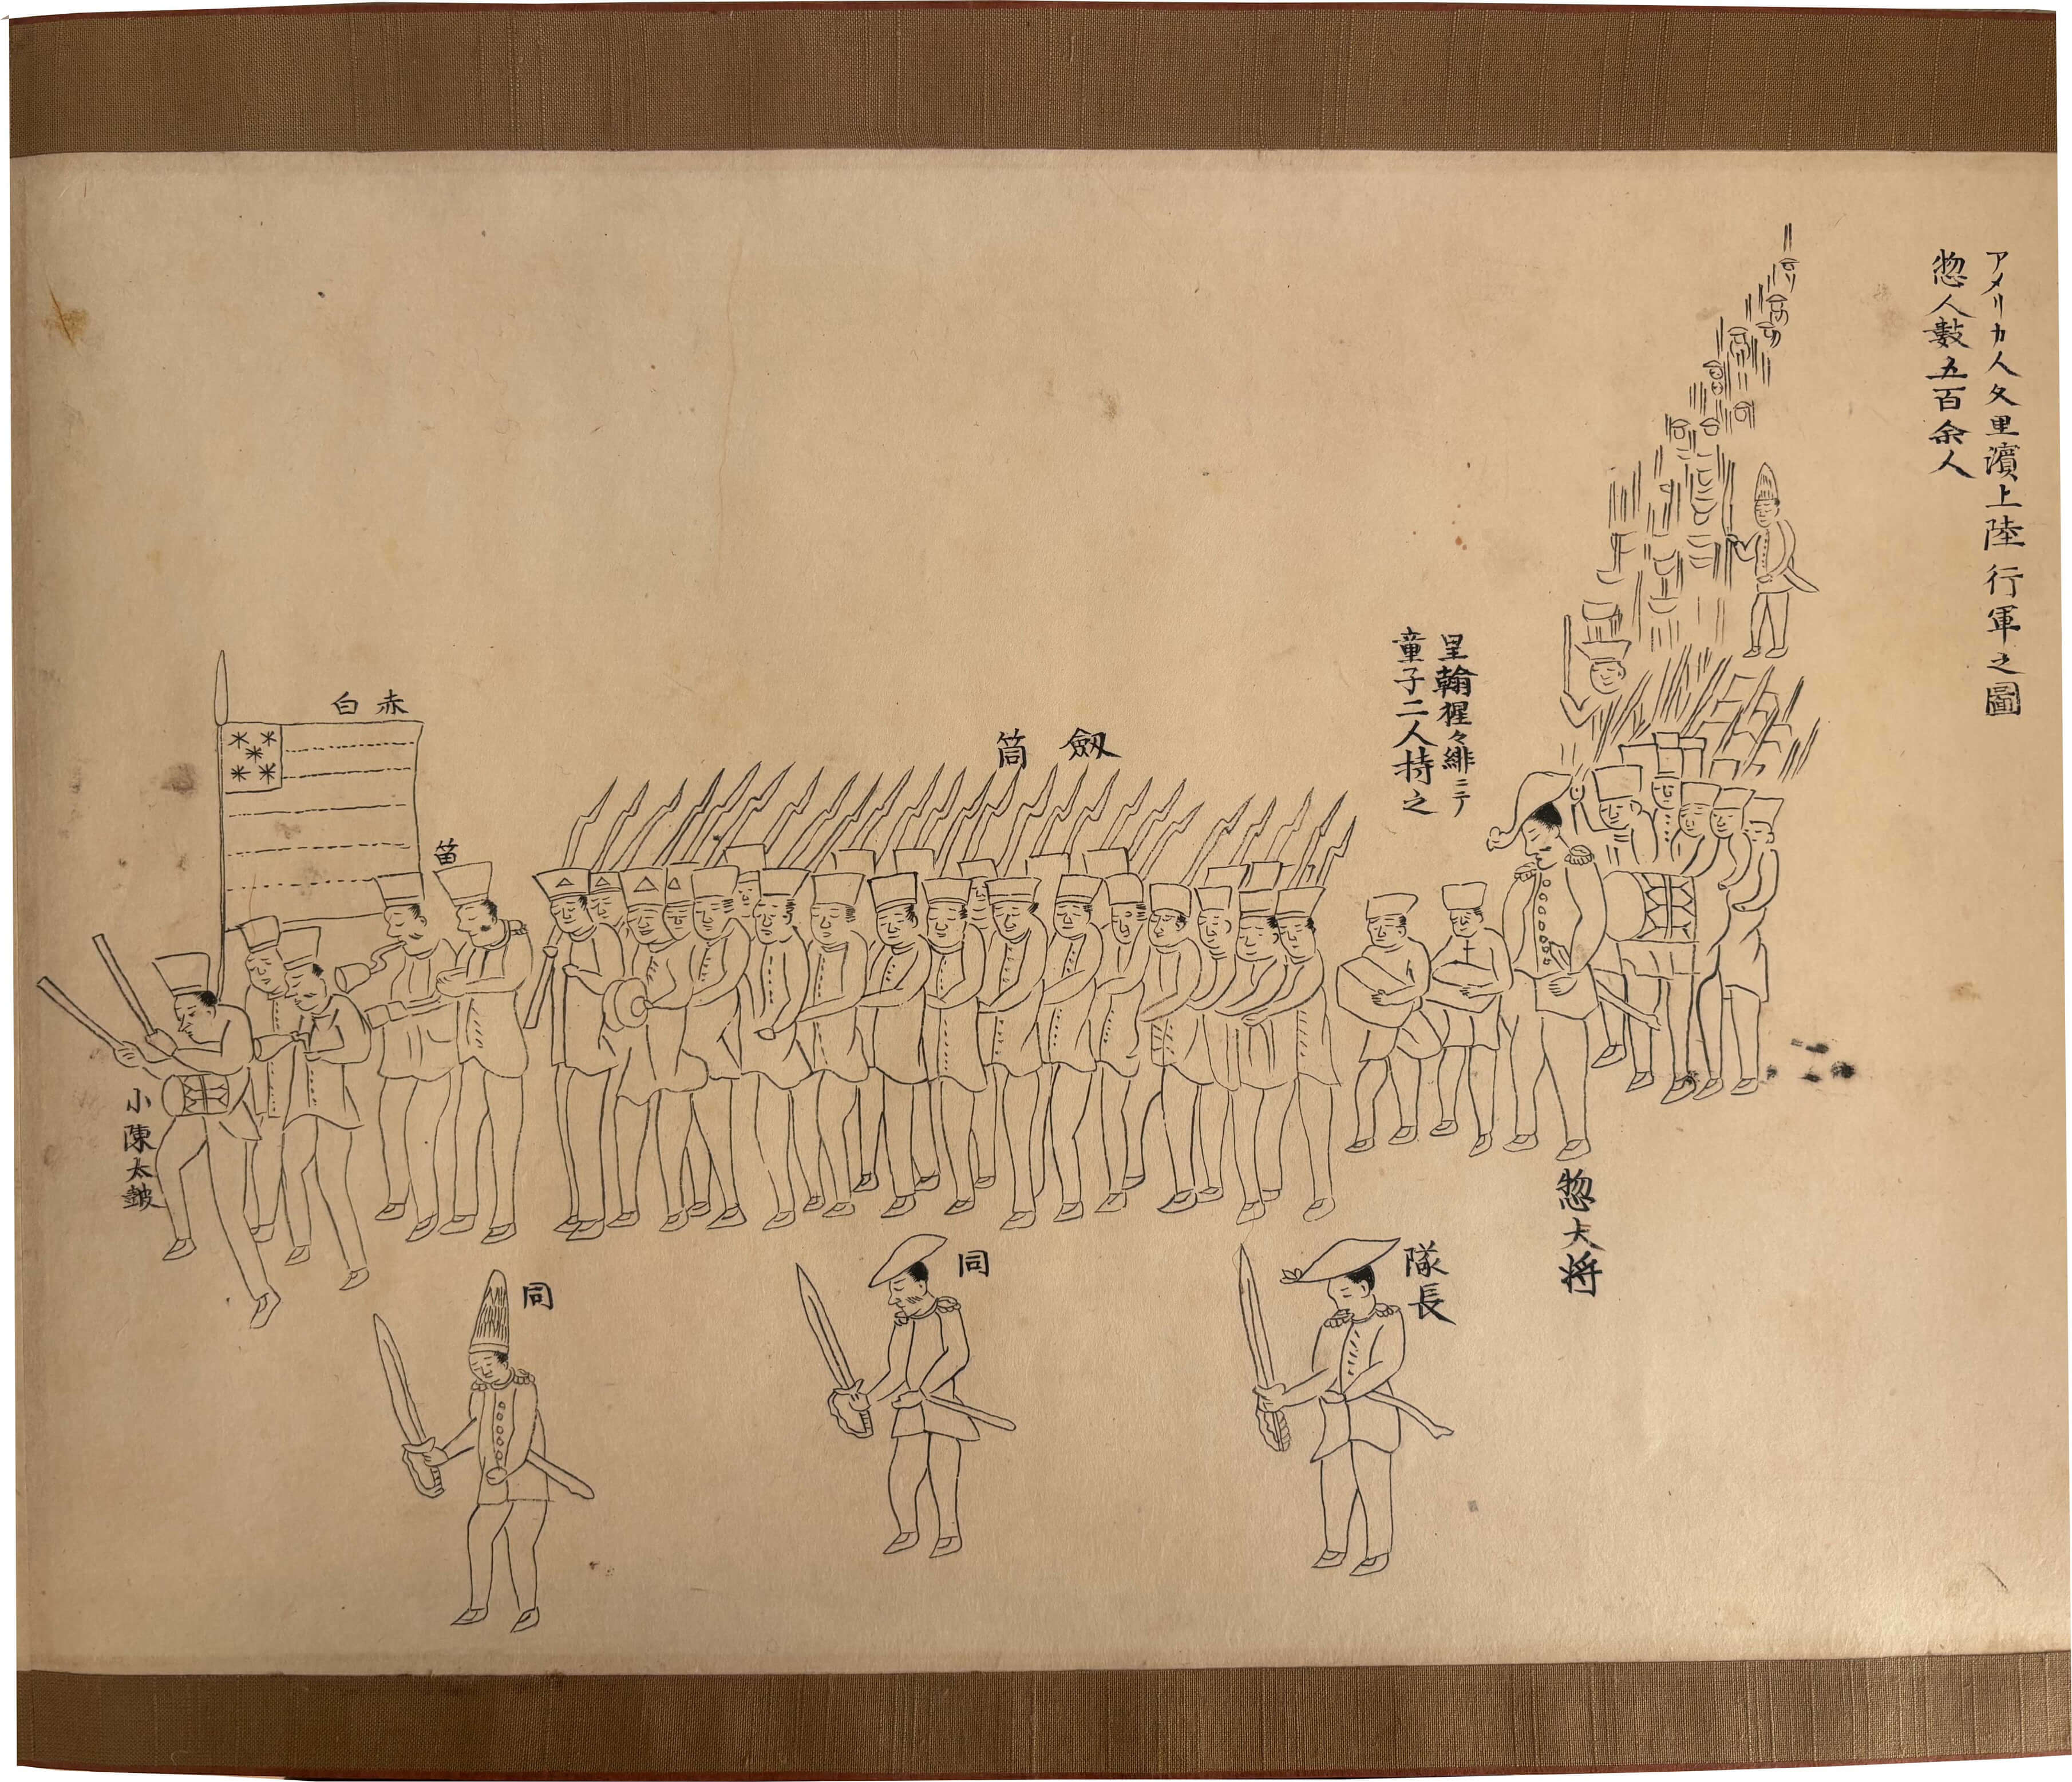 アメリカ人久里濱上陸行軍之圖
惣人數五百余人
里翰猩々緋ニテ
童子二人持之
惣大将
隊長
劔筒
同
同
笛
赤白
小陳太皷